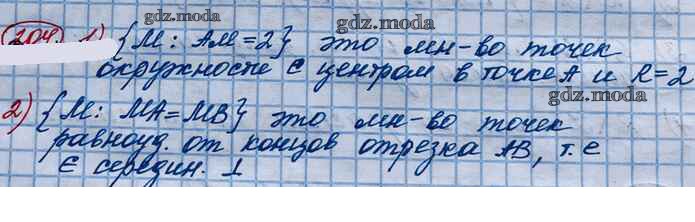 gdz.moda
204. 1) {M: AM=2} это мн-во точек
gdz.moda
окружности с центром в точке A и R=2
gdz.moda
2) {M: MA=MB} это мн-во точек
gdz.moda
равноуд. от концов отрезка AB, т.е
∈ середин. ⊥
gdz.moda